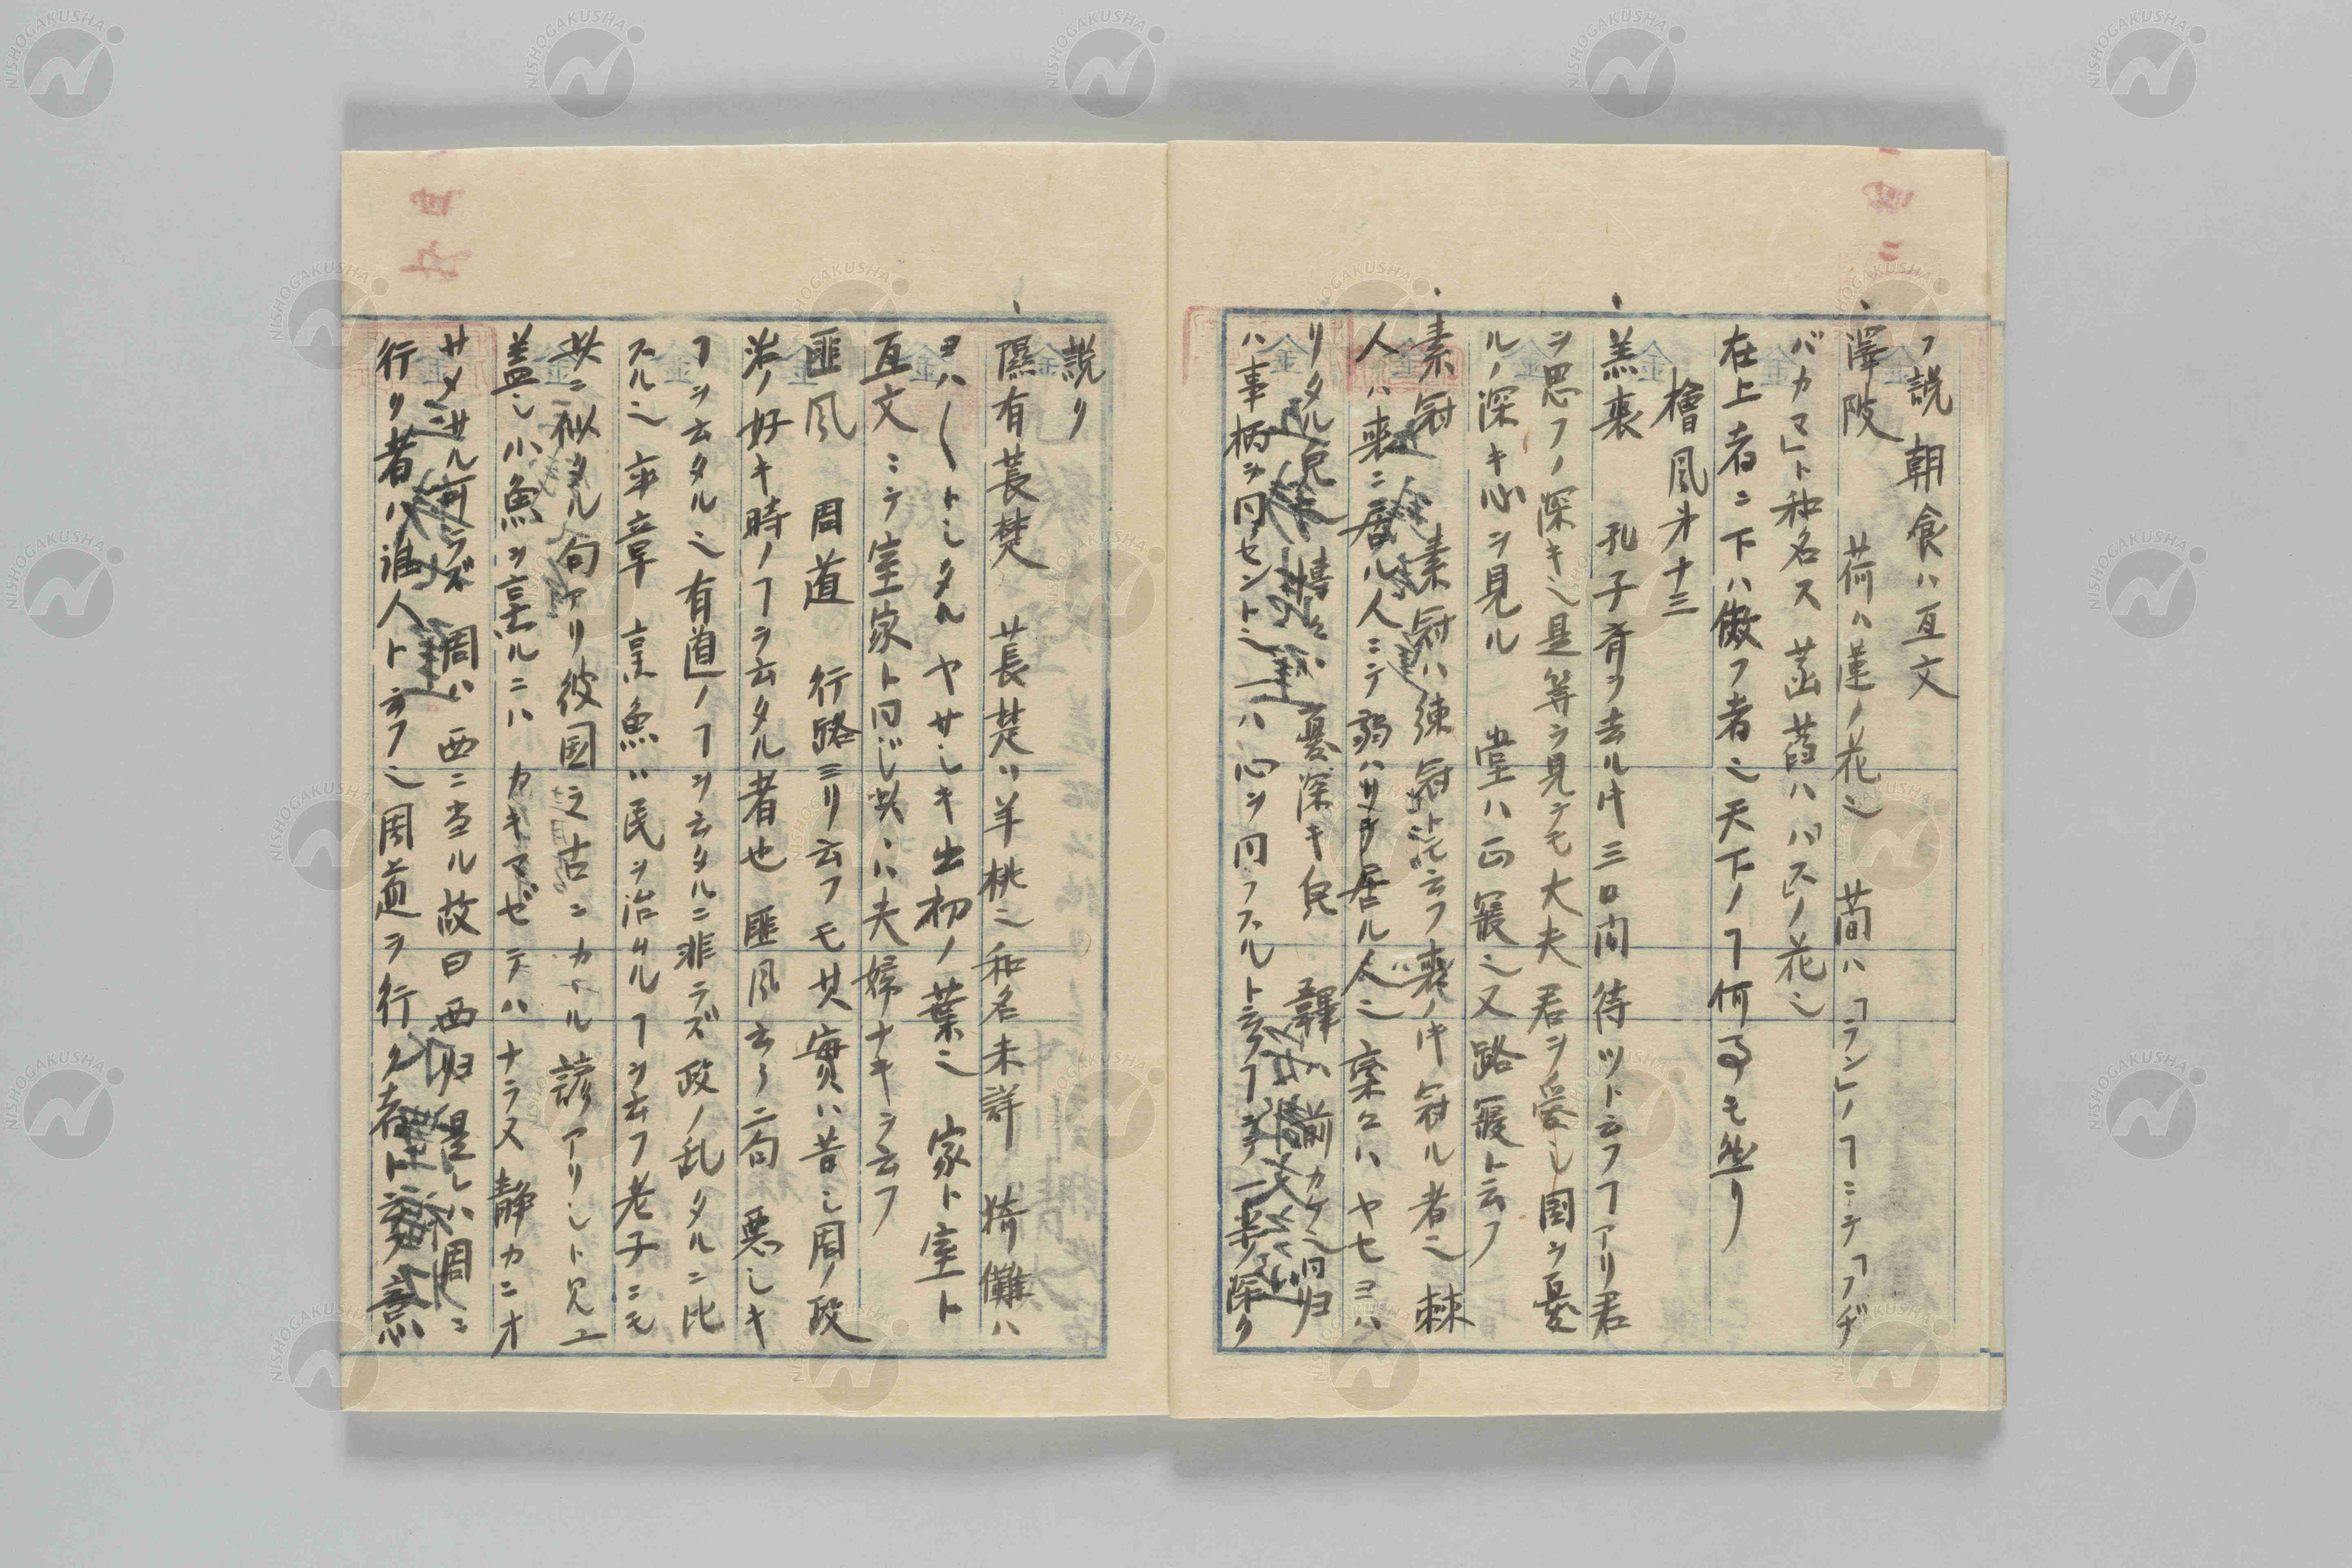 フ説朝食ハ互文
澤陂 荷ハ蓮ノ花也 蕑ハ「ラン」ノヿニテ「フヂ
バカマ」ト和名ス 菡萏ハ「ハス」ノ花也
在上者ニ下ハ傚フ者也天下ノヿ何事モ然リ
檜風才十三
羔裘 孔子肴ヲ去ル时三日间待ツト云フヿアリ君
ヲ思フノ深キ也是等ヲ見テモ大夫君ヲ愛シ国ヲ憂
ルノ深キ心ヲ見ル 堂ハ正寝也又路寝ト云フ
素冠 素冠ハ練冠トモ云フ喪ノ时冠ル者也棘
人ハ喪ニ居ル人ニテ弱ハリタ居ル人也欒々ハヤセヨハ
リタル皃 慱々ハ憂深キ皃 韠ハ前カケ也同归
ハ事柄ヲ同セント也一ハ心ヲ同フスルト云フヿ
説リ
隰有萇楚 萇楚ハ羊桃也和名未詳 猗儺ハ
ヨハ〱トシタルヤサシキ出初ノ葉也 家ト室ト
互文ニテ室家ト同じ此ハ夫婦ナキヲ云フ
匪风 周道 行路ヨリ云フモ其實ハ昔シ周ノ政
治ノ好キ時ノヿヲ云タル者也 匪风云々二句悪シキ
ヿヲ云タル也有道ノヿヲ云タルニ非ラズ政ノ乱タルニ比
スル也 卒章烹魚ハ民ヲ治ルヿヲ云フ老子ニモ
此ニ似タル句アリ彼国之古ニカヽル諺アリシト见エ
蓋シ小魚ヲ烹ルニハカキマゼテハナラヌ静カニオ
サメザル可ラズ 周ハ西ニ当ル故曰西归是レハ周ニ
行ク者ハ誰人ト云フ也周道ヲ行ク者ト云フ意